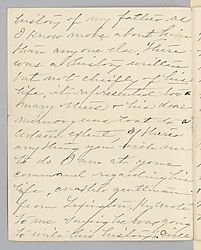 history of my father as
I know more about him
than any one else. There
was a history written
but not chiefly of his
life, it represented too
many others & his dear
memory was lost to a
certain extent. If there is
anything you wish me
to do I am at your
command regarding his
life, another gentleman
from
to me saying he was going
to write his history. Since